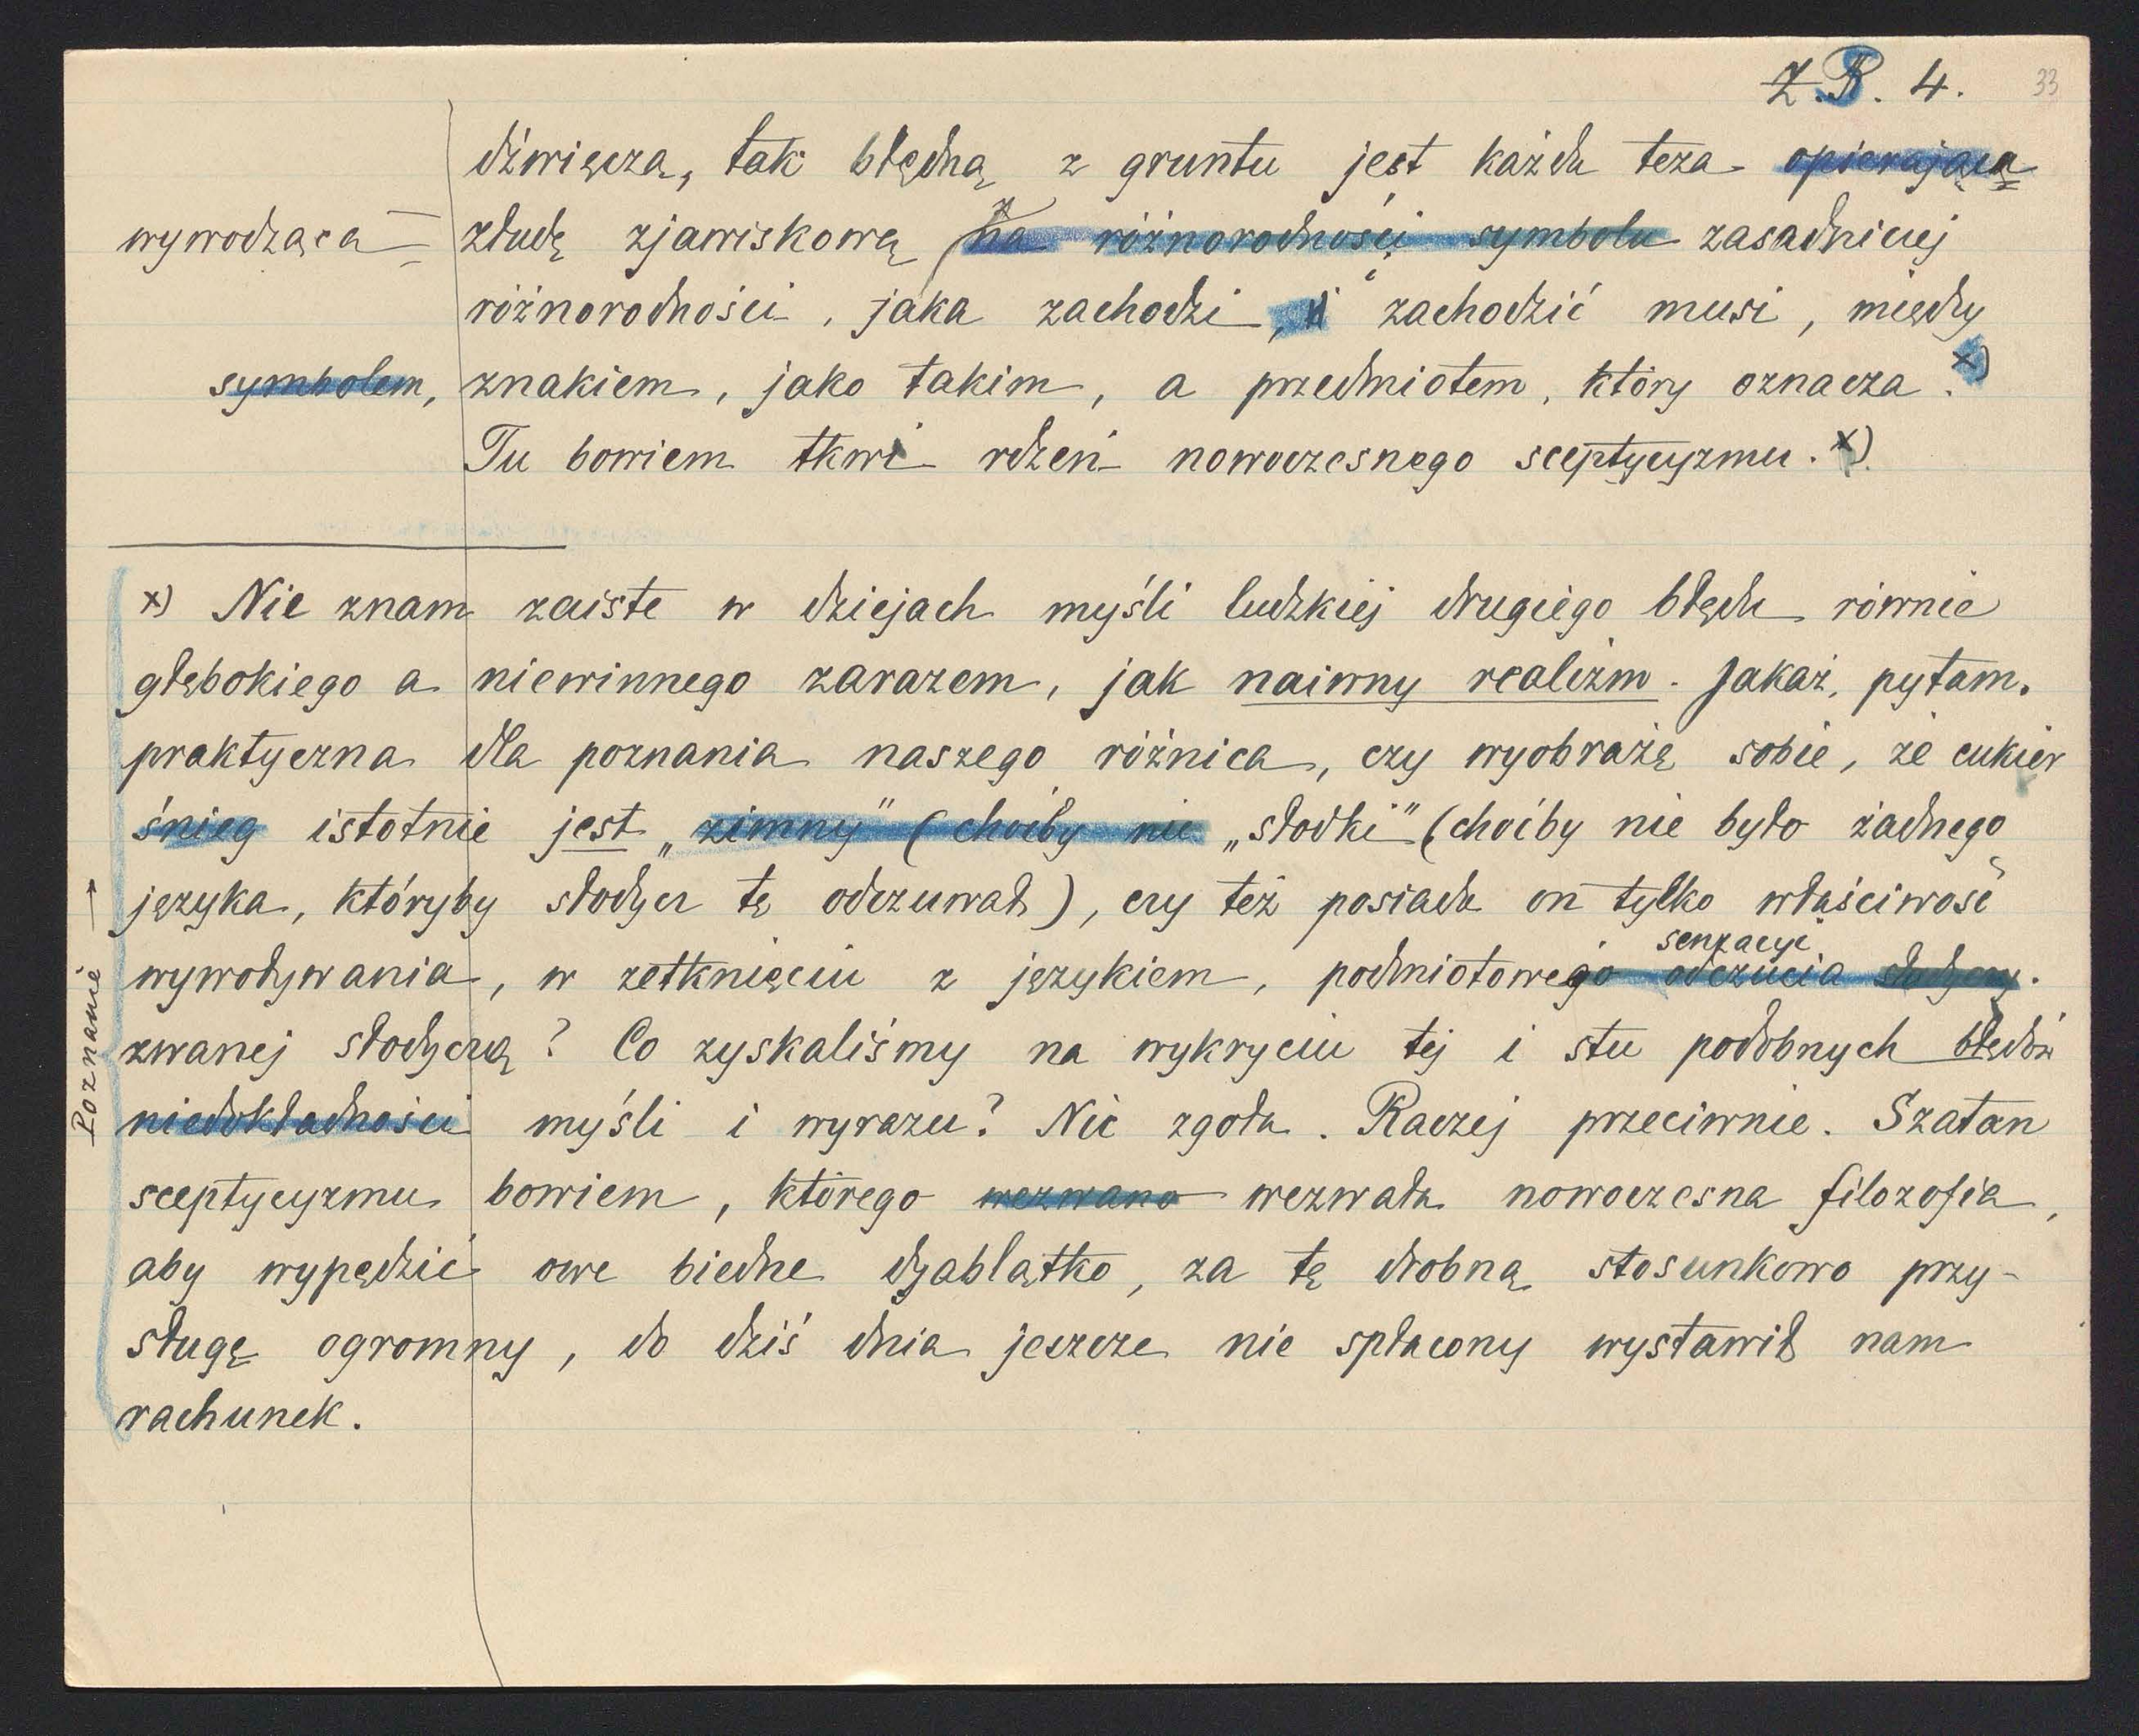 Z.B. 4. 33
dźwięcza, tak błędną z gruntu jest każda teza opierająca
wywodząca złudę zjawiskową na różnorodności symbolu z zasadniczej
różnorodności, jaka zachodzi, i zachodzić musi, między
symbolem, znakiem, jako takim, a przedmiotem, który oznacza. x)
Tu bowiem tkwi rdzeń nowoczesnego sceptycyzmu. x)
x) Nie znam zaiste w dziejach myśli ludzkiej drugiego błędu równie
głębokiego a niewinnego zarazem, jak naiwny realizm. Jakaż, pytam,
praktyczna dla poznania naszego różnica, czy wyobrażę sobie, że cukier
śnieg istotnie jest „zimny" (choćby nie „słodki" (choćby nie było żadnego
języka, któryby słodycz tę odczuwał), czy też posiada on tylko właściwość
senzacyi
wywoływania, w zetknięciu z językiem, podmiotowego odczucia słodyczy.
zwanej słodyczą? Co zyskaliśmy na wykryciu tej i stu podobnych błędów
niedokładności myśli i wyrazu? Nic zgoła. Raczej przeciwnie. Szatan
sceptycyzmu bowiem, którego wezwano wezwała nowoczesna filozofia,
aby wypędzić owe biedne dyablątko, za tę drobną stosunkowo przy-
sługę ogromny, do dziś dnia jeszcze nie spłacony wystawił nam
rachunek.
Poznanie →